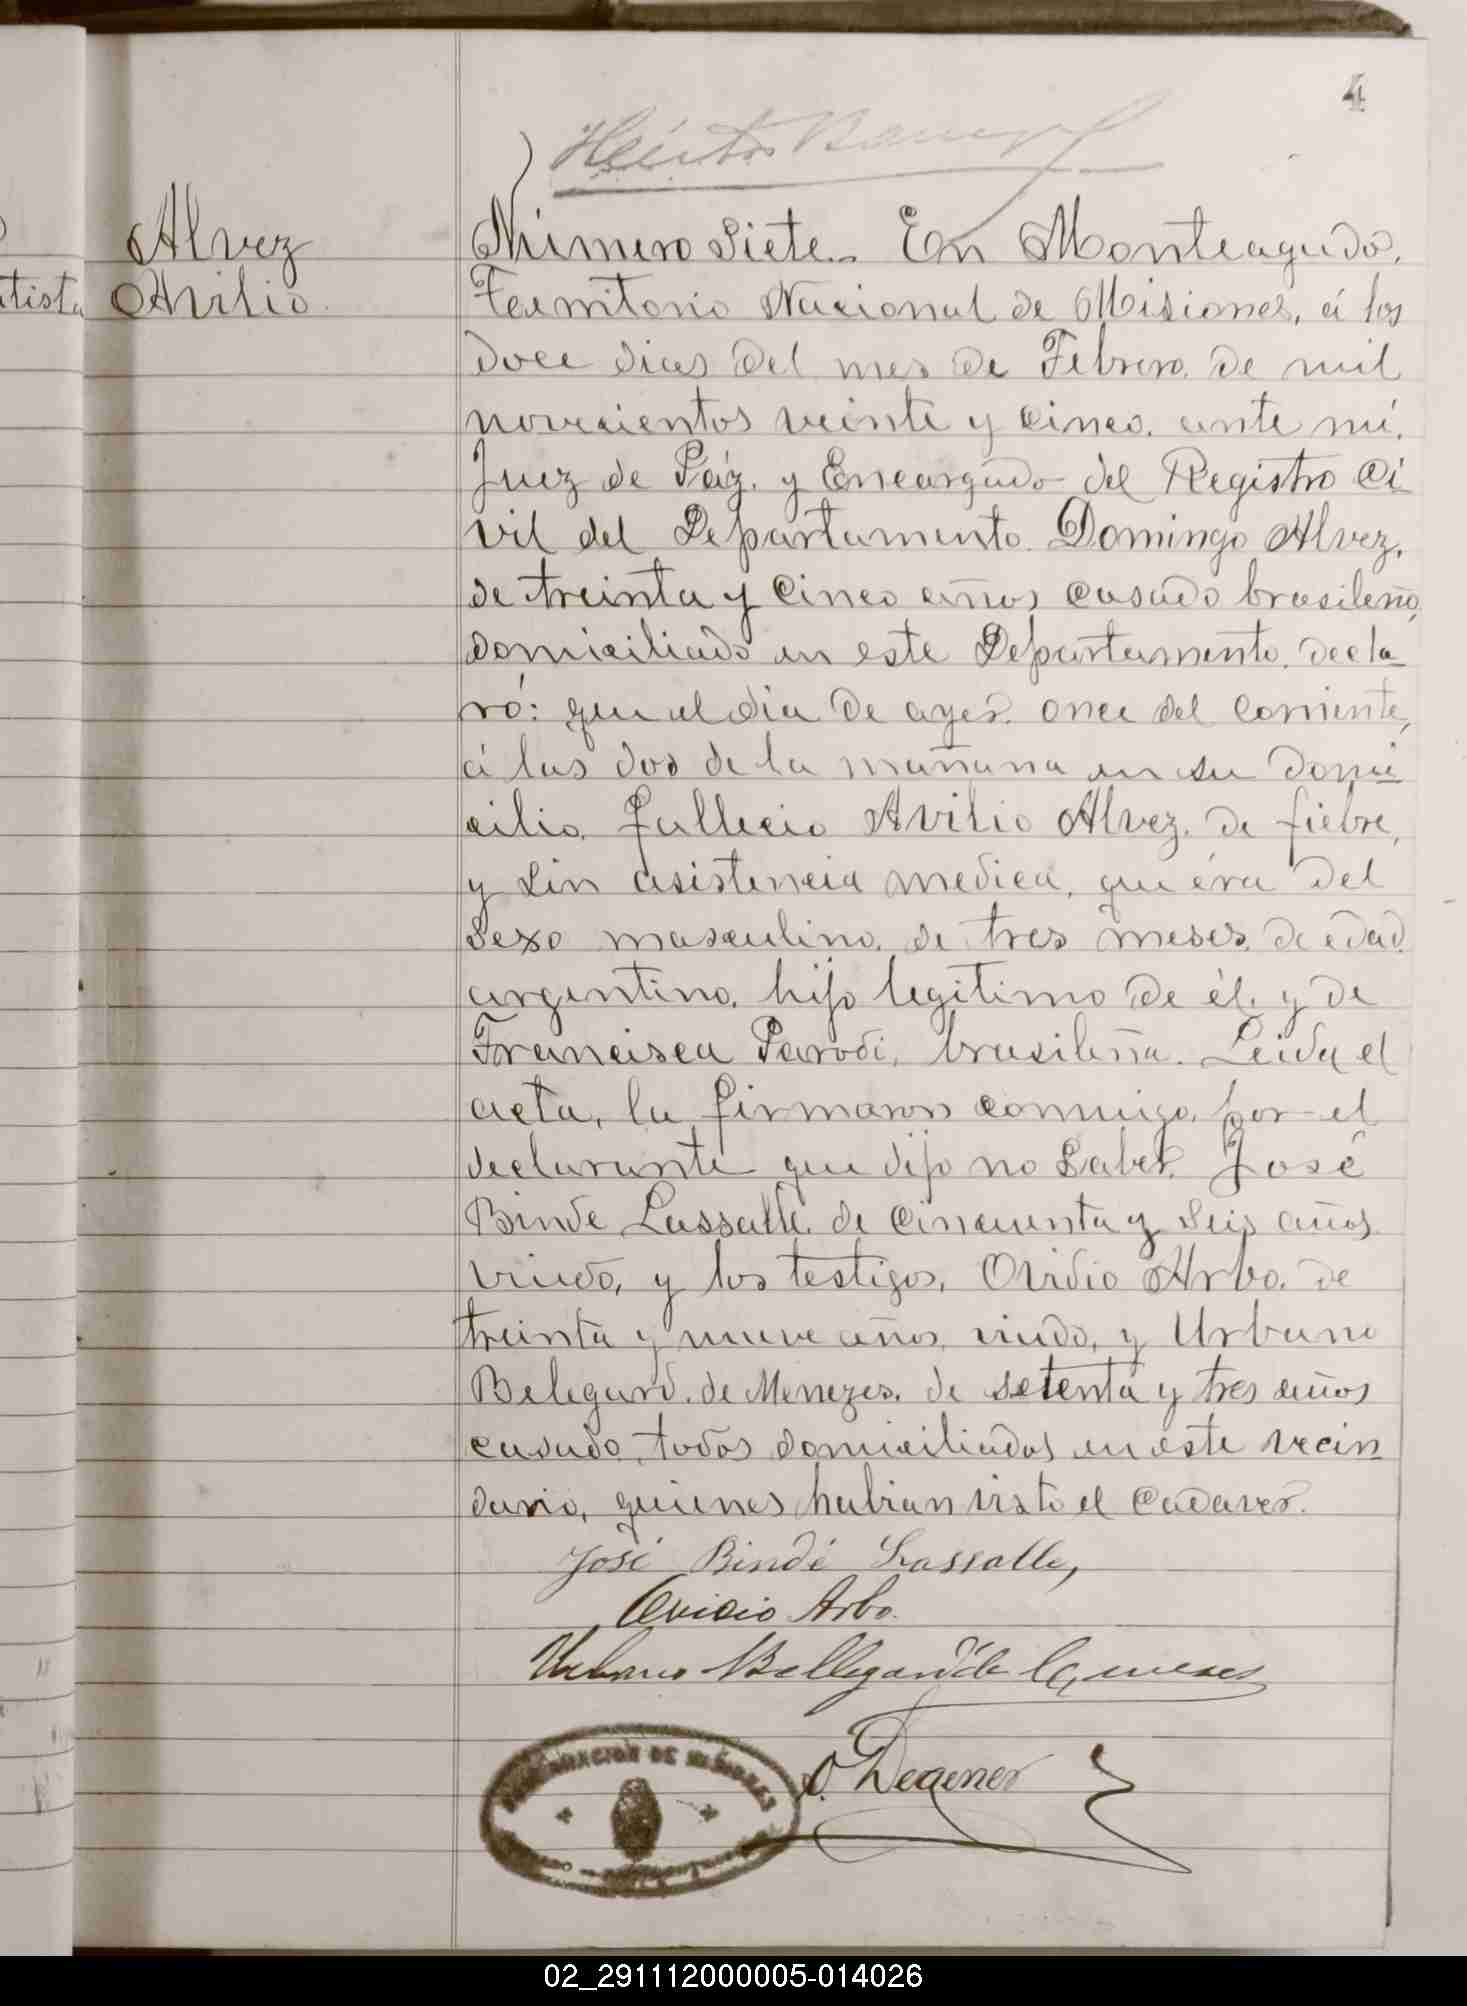 4
Héctor
Alvez
Avilio.
Número Siete. En Monteagudo,
Territorio Nacional de Misiones, á los
doce dias del mes de Febrero de mil
novecientos veinte y cinco. ante mi.
Juez de Páz. y Encargado del Registro Ci
vil del Departamento. Domingo Alvez,
de treinta y cinco años, casado brasileño,
domiciliado en este Departamento. decla_
ró: que el dia de ayer. once del corriente,
á las dos de la mañana en su domi
cilio. fallecio Avilio Alvez. de fiebre,
y sin asistencia medica, que éra del
sexo masculino, de tres meses, de edad.
argentino. hijo legitimo de él. y de
Francisca Parodi, brasileña. Leida el
acta, la firmaron conmigo, por el
declarante que dijo no saber. José
Binde Lassalle. de cincuenta y seis años
viudo, y los testigos, Ovidio Arbo. de
treinta y nueve años, viudo, y Urbano
Belegard. de Menezes. de setenta y tres años
casado, todos domiciliados en este vecin
dario, quienes habian visto el cadaver.
José Bindé Lassalle,
Ovidio Arbo.
Urbano Bellegard de Menezes
O. Degener
GOBERNACION DE MISIONES
tista
02_291112000005-014026